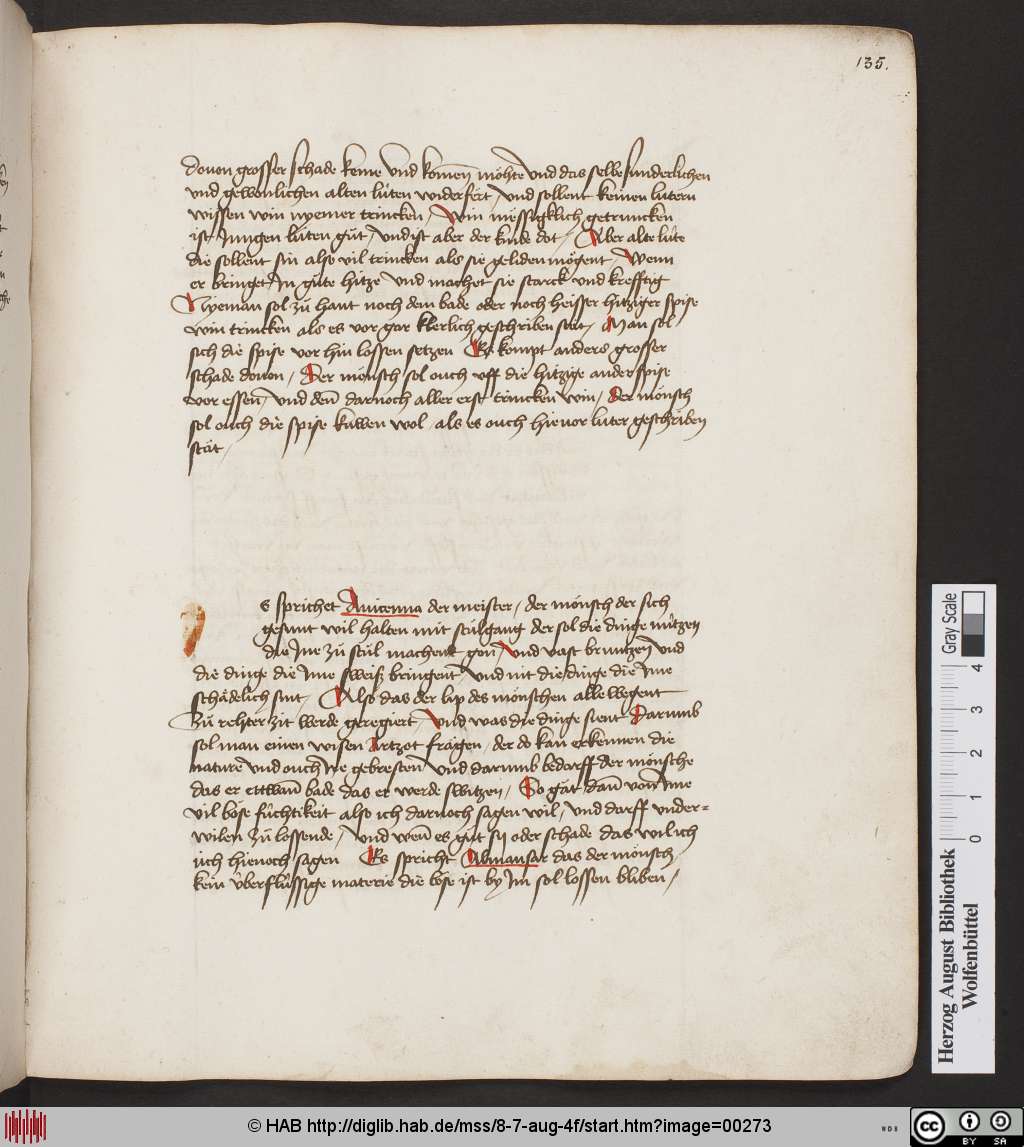 135.
douon grosser schade keme vnd komen möhte vnd das selbe sunderlichen
vnd gewonlichen alten lüten widerfert, vnd sollent keinen lutern
wissen win nyemer trincken, Win messigklich getruncken
ist Jungen lüten güt, vnd ist aber der kinde dot, Aber alte lüte
die sollent sin also vil trincken als sie geliden mögent, Wenn
er bringet In gute hitze vnd machet sie starck vnd krefftig
Nyeman sol zü hant noch dem bade oder noch heisser hitziger spise
win trincken als es vor gar klerlich geschriben stät, Man sol
sich die spise vor hin lossen setzen Es kompt anders grosser
schade douon, Der mönsch sol ouch vff die hitzige ander spise
vor essen, vnd den darnoch aller erst trincken win, Der mönsch
sol ouch die spise kuwen wol, als es ouch hieuor luter geschriben
stät,
s sprichet Auicenna der meister, der mönsch der sich
gesunt wil halten mit stülgang der sol die dinge nützen
die Jne zü stül machent gon, vnd vast bruntzen vnd
die dinge die Jme sweiß bringent, vnd nit die dinge die Jme
schädelich sint, Also das der lip des mönschen alle wegent
zü rehter zit werde geregiert, Vnd was die dinge sient Darumb
sol man einen wisen Artzot frägen, der do kan erkennen die
nature vnd ouch Jre gebresten vnd darumb bedarff der mönsche
das er ettwan bade das er werde switzen, So gät dann von Jme
vil böse füchtikeit also ich darnoch sagen wil, vnd darff vnder-
wilen zü lossende, vnd wen es gut sy oder schade das wil ich
üch hienoch sagen Es spricht Almansar das der mönsch,
kein überflüssige materie die böse ist by Jm sol lossen bliben,
Herzog August Bibliothek
Wolfenbüttel
Gray Scale
0 1 2 3 4
© HAB http://diglib.hab.de/mss/8-7-aug-4f/start.htm?image=00273
WDB
cc BY SA